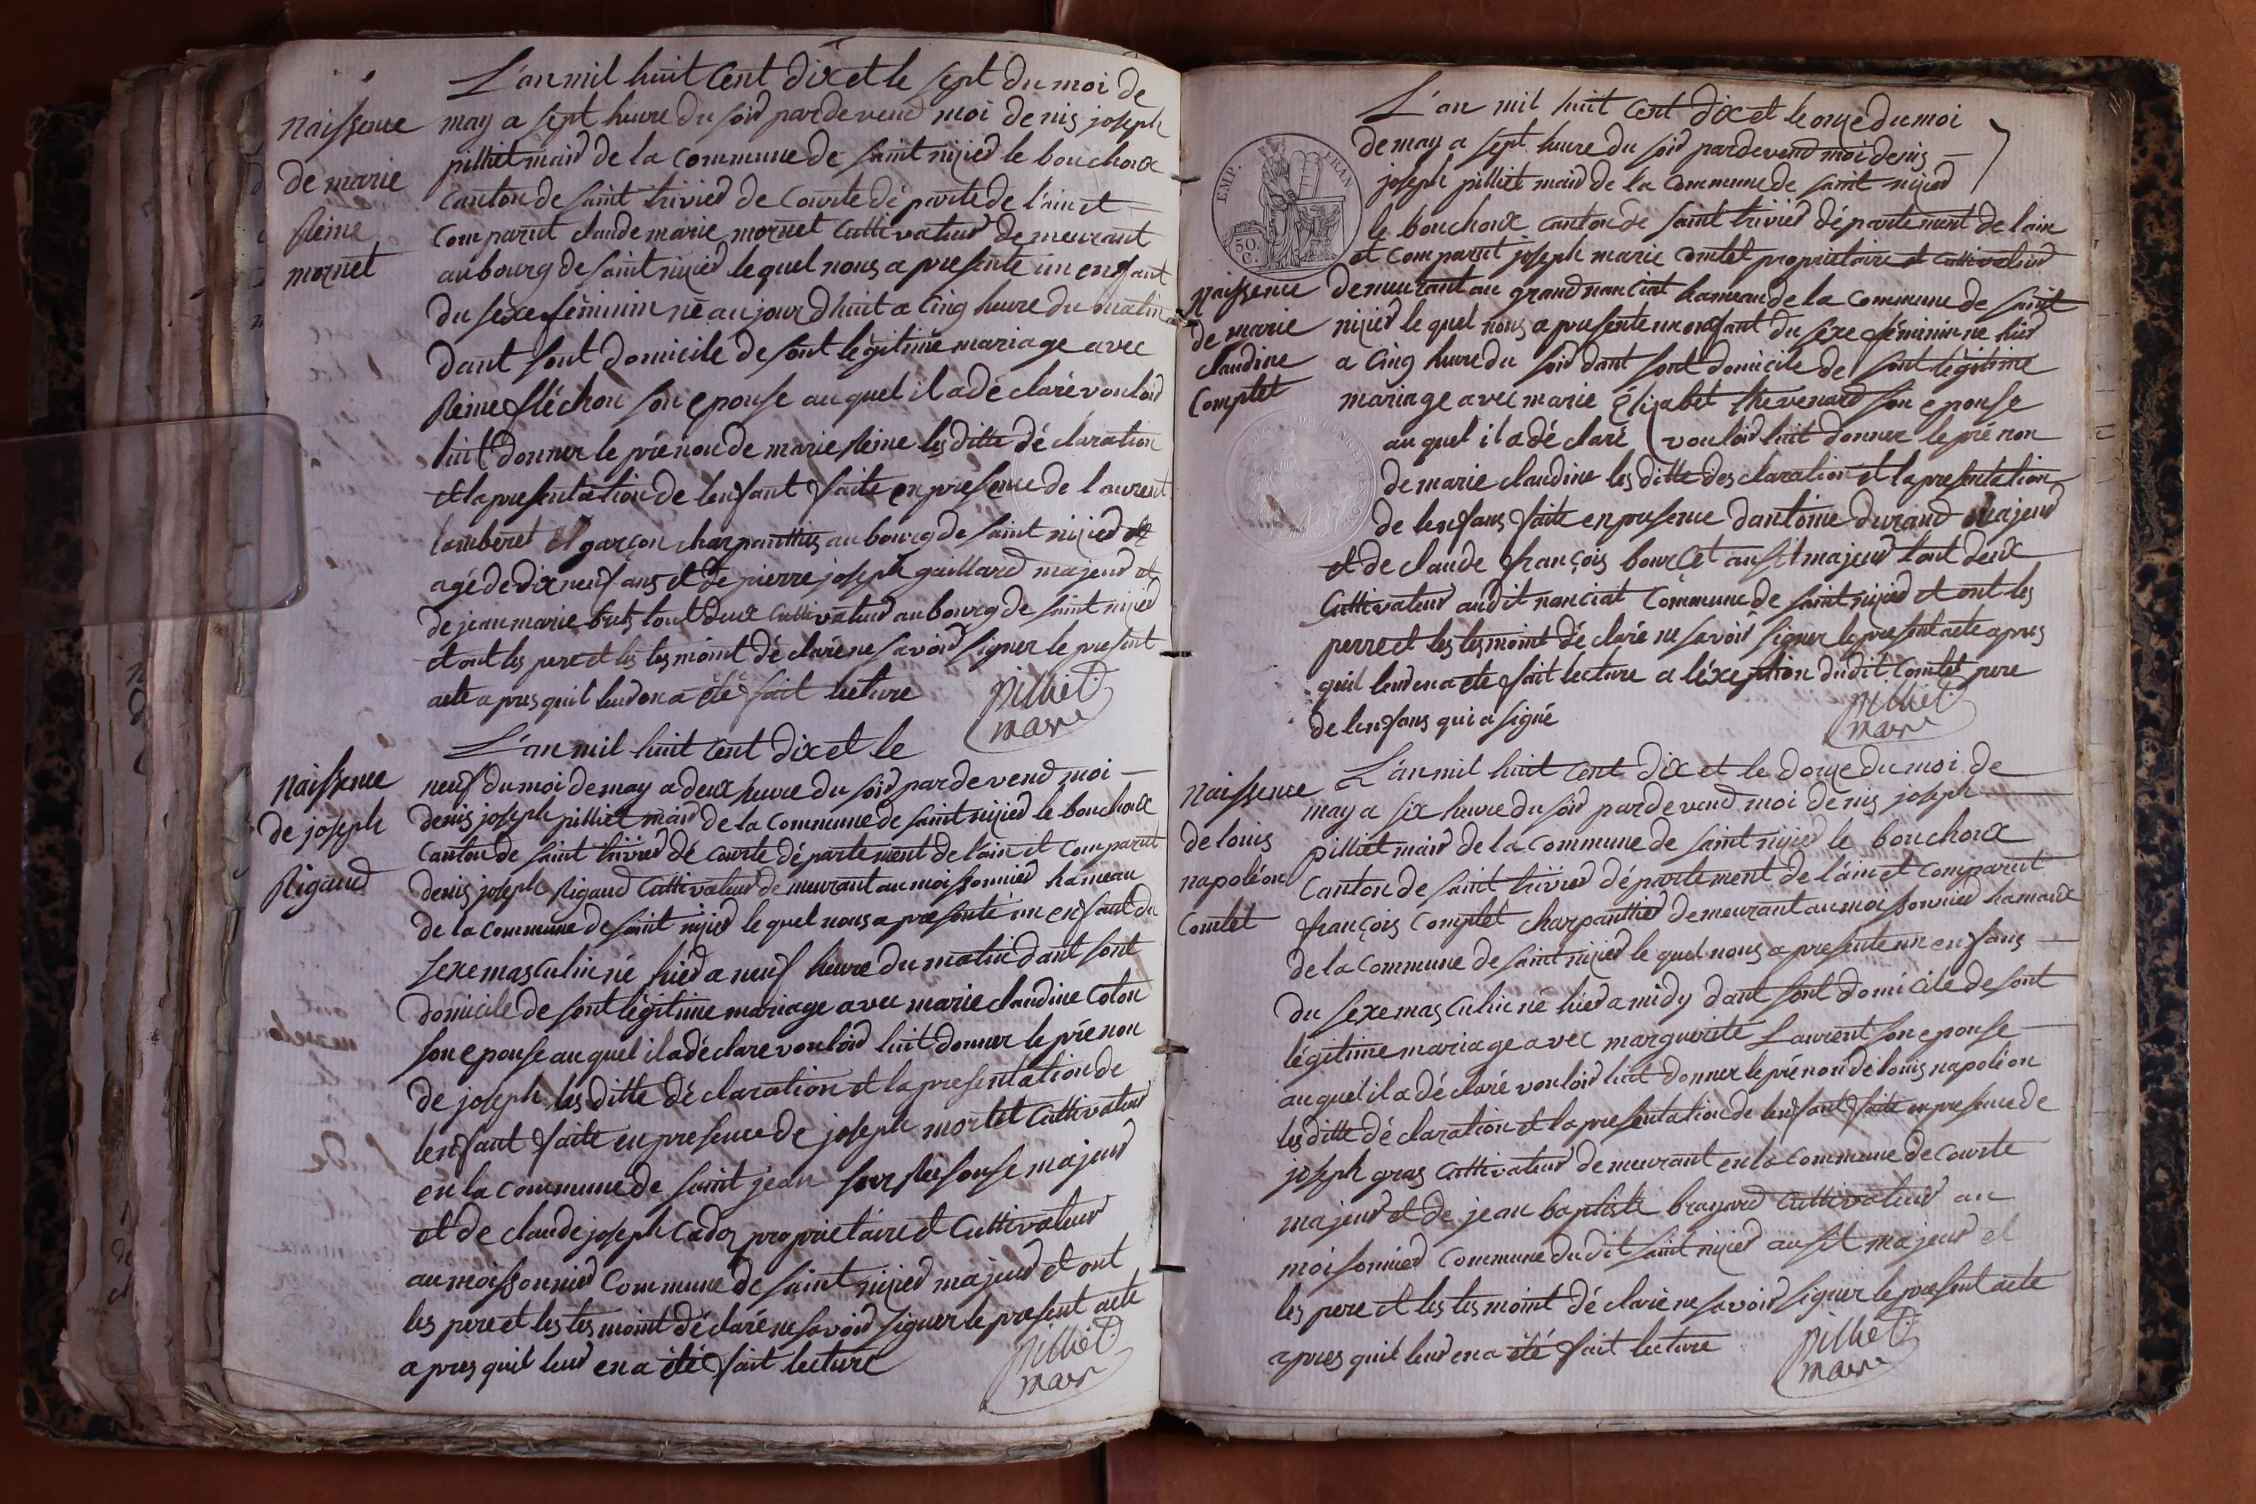 L'an mil huit Cent dix et le sept du moi de
Naissence
de marie
Reine
mornet
may a sept heure du soir pardevend moi denis joseph
pilliet mair de la Commune de saint nizier le bouchoux
Canton de saint trivier de Courte départe de l'ain et
Comparut claude marie mornet Cultivateur demeurant
au bourg de saint nizier le quel nous a presente un enfant
du séxe féminin né aujourdhuit a Cinq heure du matin
dant sont domicile de sont légitime mariage avec
Reine fléchon son epouse au quel il a déclaré vouloir
luit donner le prénon de marie Reine les ditte déclaration
et la presentation de lenfant faite en presence de laurent
lamberet garçon charpanthier au bourg de saint nizier
agé de dix neuf ans et de pierre joseph gaillard majeur et
de jean marie buts tout deux Cultivateur au bourg de saint nizier
et ont les pere et les tesmoint déclaré ne savoir signer le present
acte apres quit leur en a été fait lecture
pilliet
mair
L'an mil huit Cent dix et le
Naissence
de joseph
Rigaud
neuf du moi de may a deux heure du soir pardevend moi
denis joseph pilliet mair de la Commune de saint nizier le bouchoux
Canton de saint trivier de Courte département de lain et Comparut
denis joseph Rigaud Cultivateur demeurant au moissonnier hameau
de la Commune de saint nizier le quel nous a presente un enfant du
sexe masculin né hier a neuf heure du matin dant sont
domicile de sont légitime mariage avec marie claudine Colon
son epouse au quel il a déclare vouloir luit donner le prénon
de joseph les ditte déclaration et la presentation de
lenfant faite en presence de joseph mortet Cultivateur
en la Commune de saint jean sur Reisouse majeur
et de claude joseph Cadoz proprietaire et Cultivateur
au moissonnier Commune de saint nizier majeur et ont
les pere et les tesmoint déclaré ne savoir signer le present acte
apres quit leur en a été fait lecture
pilliet
mair
L'an mil huit Cent dix et le onze du moi
de may a sept heure du soir pardevend moi denis
joseph pilliet mair de la Commune de saint nizier
EMP. FRAN
50.
C.
le bouchoux Canton de saint trivier département de lain
et Comparut joseph marie Comtet proprietaire et Cultivateur
Naissence
de marie
claudine
Comptet
demeurant au grand nanciat hameau de la Commune de saint
nizier le quel nous a presente un enfant du sexe féminin né hier
a Cinq heure du soir dant sont domicile de sont légitime
mariage avec marie Elizabet thevenard son epouse
au quel il a déclaré vouloir luit donner le prénon
de marie claudine les ditte des claration et la presentation
de lenfans faite en presence dantoine durand majeur
et de claude françois bourcet aussit majeur tout deux
Cultivateur audit nanciat Commune de saint nizier et ont les
perre et les tesmoint déclaré ne savoir signer le present acte apres
quit leur en a ete fait lecture a léxeption dudit Comtet pere
de lenfans qui a signé
pilliet
mair
L'an mil huit Cent dix et le doze du moi de
Naissence
de louis
napoléon
Comtet
may a six heure du soir pardevend moi denis joseph
pilliet mair de la Commune de saint nizier le bouchoux
Canton de saint trivier département de lain et Comparut
françois Comptet charpanthier demeurant au moissonnier hamaux
de la Commune de saint nizier le quel nous a presente un enfans
du sexe masculin né hier a midy dant sont domicile de sont
légitime mariage avec marguerite Laurent son epouse
au quel il a déclaré vouloir luit donner le prénon de louis napoléon
les ditte déclaration et la presentation de lenfant faite en presence de
joseph gras Cultivateur demeurant en la Commune de Courte
majeur et de jean baptiste brayard Cultivateur au
moisonnier Commune dudit saint nizier aussit majeur et
les pere et les tesmoint déclaré ne savoir signer le present acte
apres quit leur en a été fait lecture
pilliet
mair